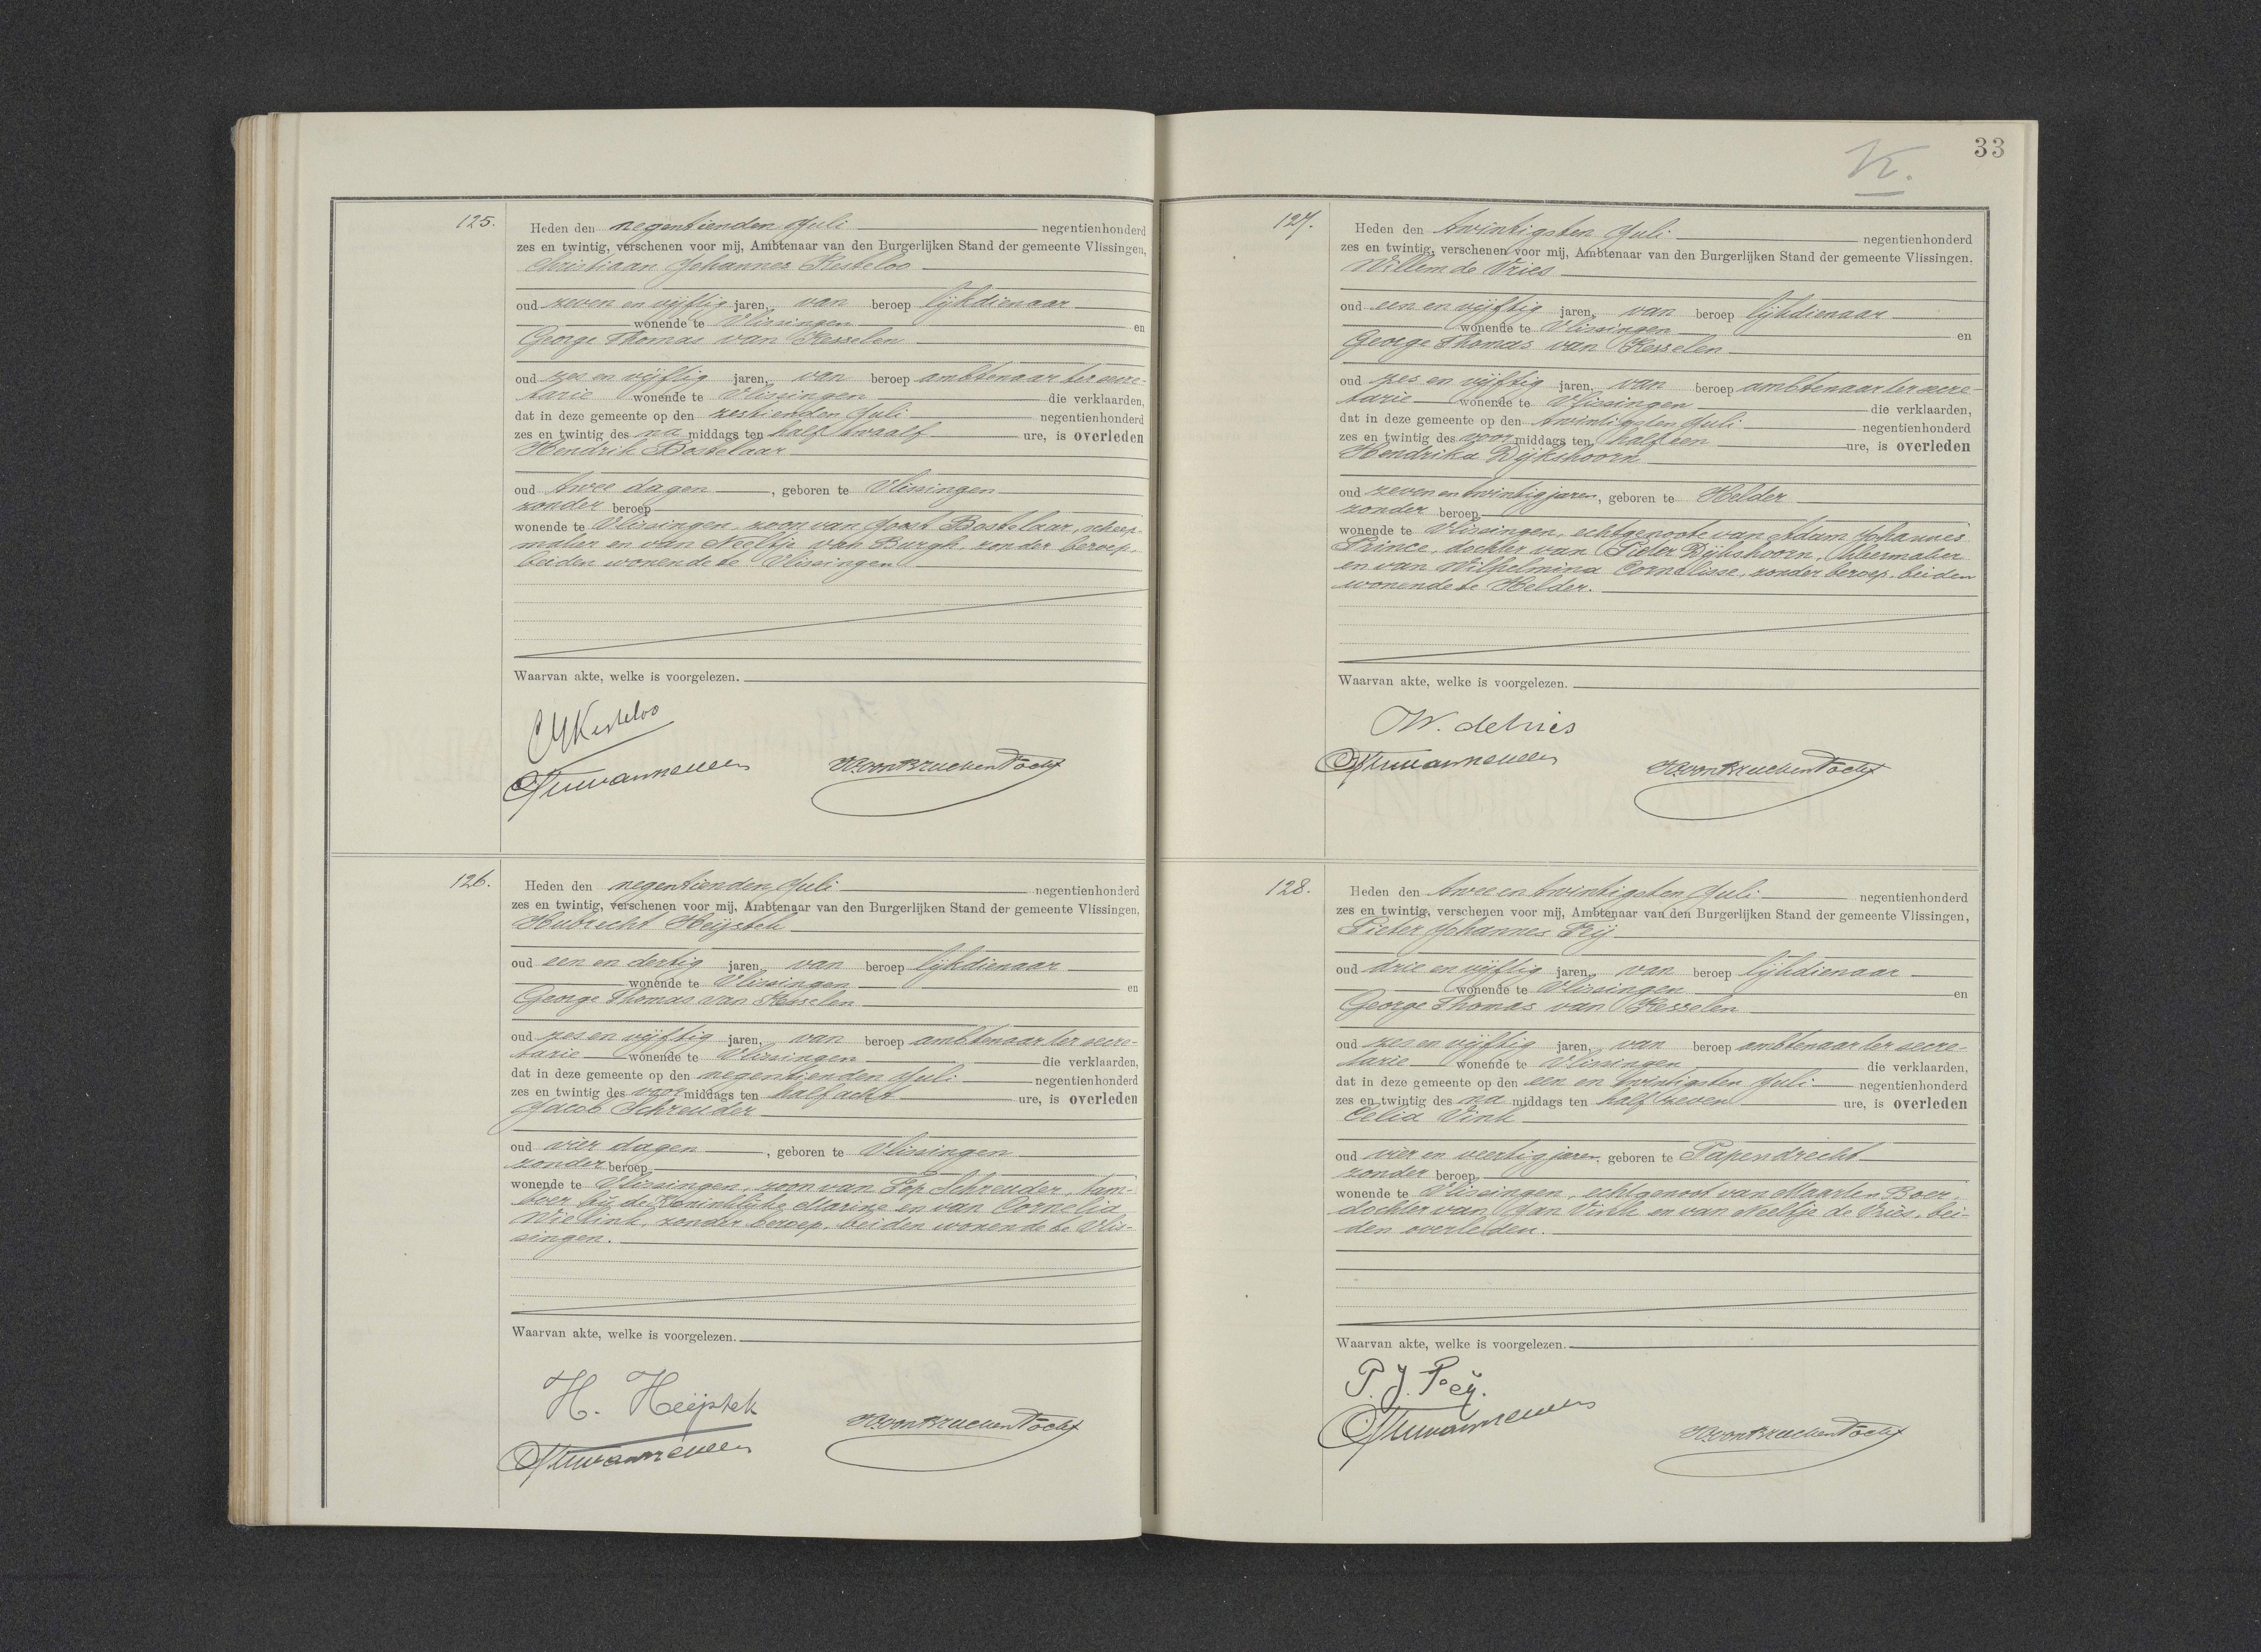 125.
Heden den negentienden Juli negentienhonderd
zes en twintig, verschenen voor mij, Ambtenaar van den Burgerlijken Stand der gemeente Vlissingen,
Christiaan Johannes Kesteloo
oud zeven en vijftig jaren, van beroep lijkdienaar
wonende te Vlissingen en
George Thomas van Kesselen
oud zes en vijftig jaren, van beroep ambtenaar ter secre-
tarie wonende te Vlissingen die verklaarden,
dat in deze gemeente op den zestienden Juli negentienhonderd
zes en twintig des na middags ten half twaalf ure, is overleden
Hendrik Bostelaar
oud twee dagen, geboren te Vlissingen
zonder beroep
wonende te Vlissingen, zoon van Joost Bostelaar, scheep-
maker en van Neeltje van Burgh, zonder beroep,
beiden wonende te Vlissingen
Waarvan akte, welke is voorgelezen.
CJKesteloo
126.
Heden den negentienden Juli negentienhonderd
zes en twintig, verschenen voor mij, Ambtenaar van den Burgerlijken Stand der gemeente Vlissingen,
Hubrecht Heijstek
oud een en dertig jaren, van beroep lijkdienaar
wonende te Vlissingen en
George Thomas van Kesselen
oud zes en vijftig jaren, van beroep ambtenaar ter secre-
tarie wonende te Vlissingen die verklaarden,
dat in deze gemeente op den negentienden Juli negentienhonderd
zes en twintig des voor middags ten half acht ure, is overleden
Jacob Schreuder
oud vier dagen, geboren te Vlissingen
zonder beroep
wonende te Vlissingen, zoon van Pop Schreuder, tam-
boer bij de Koninklijke Marine en van Cornelia
Wielink, zonder beroep, beiden wonende te Vlis-
singen.
Waarvan akte, welke is voorgelezen.
H. Heijstek
33
K.
127.
Heden den twintigsten Juli negentienhonderd
zes en twintig, verschenen voor mij, Ambtenaar van den Burgerlijken Stand der gemeente Vlissingen,
Willem de Vries
oud een en vijftig jaren, van beroep lijkdienaar
wonende te Vlissingen en
George Thomas van Kesselen
oud zes en vijftig jaren, van beroep ambtenaar ter secre-
tarie wonende te Vlissingen die verklaarden,
dat in deze gemeente op den twintigsten Juli negentienhonderd
zes en twintig des voor middags ten half een ure, is overleden
Hendrika Dijkshoorn
oud zeven en twintig jaren, geboren te Helder
zonder beroep
wonende te Vlissingen, echtgenoote van Adam Johannes
Prince, dochter van Pieter Dijkshoorn,
en van Wilhelmina Cornelisse, zonder beroep, beiden
wonende te Helder.
Waarvan akte, welke is voorgelezen.
W. de Vries
128.
Heden den twee en twintigsten Juli negentienhonderd
zes en twintig, verschenen voor mij, Ambtenaar van den Burgerlijken Stand der gemeente Vlissingen,
Pieter Johannes Peij
oud drie en vijftig jaren, van beroep lijkdienaar
wonende te Vlissingen en
George Thomas van Kesselen
oud zes en vijftig jaren, van beroep ambtenaar ter secre-
tarie wonende te Vlissingen die verklaarden,
dat in deze gemeente op den een en twintigsten Juli negentienhonderd
zes en twintig des na middags ten half zeven ure, is overleden
Celia Vink
oud vier en veertig jaren, geboren te Papendrecht
zonder beroep
wonende te Vlissingen, echtgenoot van Maarten Boer,
dochter van Jan Vink en van Neeltje de Vries, bei-
den overleden.
Waarvan akte, welke is voorgelezen.
P. J. Peij.